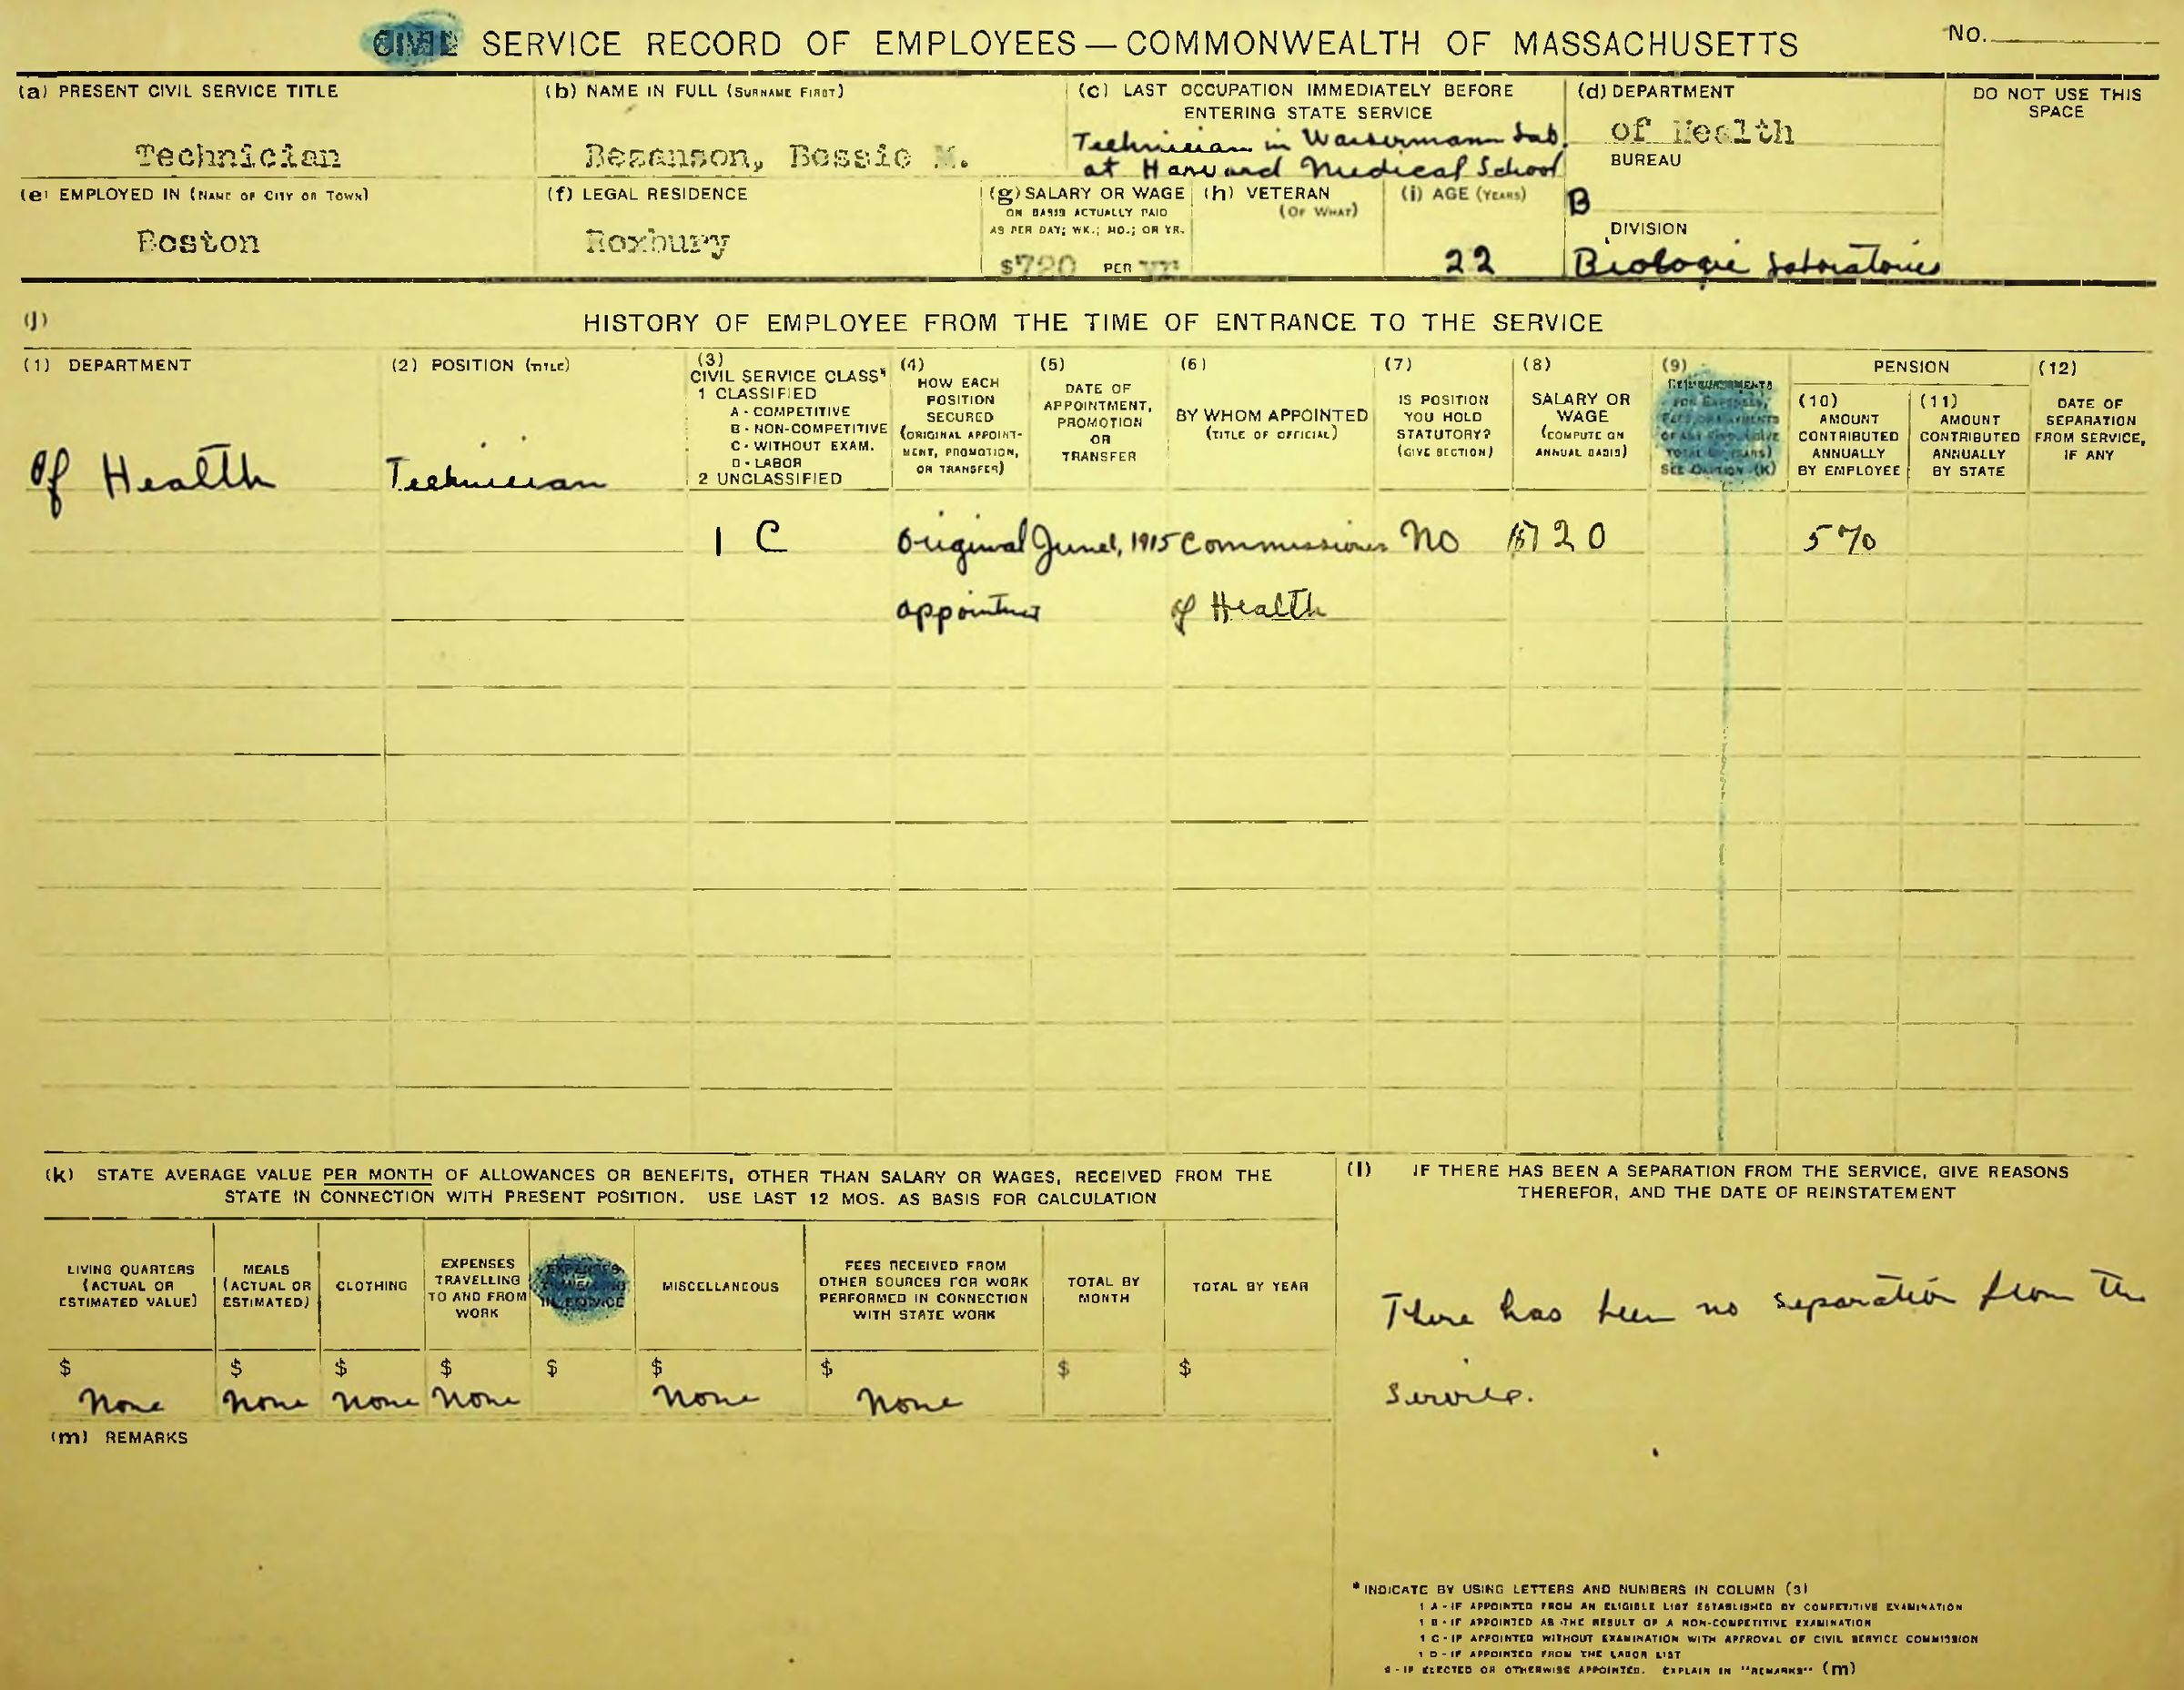 CIVIL SERVICE RECORD OF EMPLOYEES — COMMONWEALTH OF MASSACHUSETTS
NO.
(a) PRESENT CIVIL SERVICE TITLE
Technician
(b) NAME IN FULL (SURNAME FIRST)
Bezanson, Bessie M.
(c) LAST OCCUPATION IMMEDIATELY BEFORE
ENTERING STATE SERVICE
Technician in Wassermann Lab.
at Harvard Medical School
(d) DEPARTMENT
of Health
BUREAU
DO NOT USE THIS
SPACE
(e) EMPLOYED IN (NAME OF CITY OR TOWN)
Boston
(f) LEGAL RESIDENCE
Roxbury
(g) SALARY OR WAGE
ON BASIS ACTUALLY PAID
AS PER DAY; WK.; MO.; OR YR.
$720 PER yr.
(h) VETERAN
(OF WHAT)
(i) AGE (YEARS)
22
B
DIVISION
Biologic Laboratories
(j)
HISTORY OF EMPLOYEE FROM THE TIME OF ENTRANCE TO THE SERVICE
(1) DEPARTMENT
(2) POSITION (TITLE)
(3)
CIVIL SERVICE CLASS*
1 CLASSIFIED
A - COMPETITIVE
B - NON-COMPETITIVE
C - WITHOUT EXAM.
D - LABOR
2 UNCLASSIFIED
(4)
HOW EACH
POSITION
SECURED
(ORIGINAL APPOINT-
MENT, PROMOTION,
OR TRANSFER)
(5)
DATE OF
APPOINTMENT,
PROMOTION
OR
TRANSFER
(6)
BY WHOM APPOINTED
(TITLE OF OFFICIAL)
(7)
IS POSITION
YOU HOLD
STATUTORY?
(GIVE SECTION)
(8)
SALARY OR
WAGE
(COMPUTE ON
ANNUAL BASIS)
(9)
REIMBURSEMENTS
FOR EXPENSES,
SEE CAPTION (K)
PENSION
(10)
AMOUNT
CONTRIBUTED
ANNUALLY
BY EMPLOYEE
(11)
AMOUNT
CONTRIBUTED
ANNUALLY
BY STATE
(12)
DATE OF
SEPARATION
FROM SERVICE,
IF ANY
Of Health
Technician
1 C
Original June 1, 1915 Commissioner No 720 5%
appointment of Health
(k) STATE AVERAGE VALUE PER MONTH OF ALLOWANCES OR BENEFITS, OTHER THAN SALARY OR WAGES, RECEIVED FROM THE
STATE IN CONNECTION WITH PRESENT POSITION. USE LAST 12 MOS. AS BASIS FOR CALCULATION
LIVING QUARTERS
(ACTUAL OR
ESTIMATED VALUE)
MEALS
(ACTUAL OR
ESTIMATED)
CLOTHING
EXPENSES
TRAVELLING
TO AND FROM
WORK
EXPENSES
TRAVELLING
IN SERVICE
MISCELLANEOUS
FEES RECEIVED FROM
OTHER SOURCES FOR WORK
PERFORMED IN CONNECTION
WITH STATE WORK
TOTAL BY
MONTH
TOTAL BY YEAR
$ $ $ $ $ $ $ $ $
None None None None None None
(l) IF THERE HAS BEEN A SEPARATION FROM THE SERVICE, GIVE REASONS
THEREFOR, AND THE DATE OF REINSTATEMENT
There has been no separation from the
service.
(m) REMARKS
* INDICATE BY USING LETTERS AND NUMBERS IN COLUMN (3)
1 A - IF APPOINTED FROM AN ELIGIBLE LIST ESTABLISHED BY COMPETITIVE EXAMINATION
1 B - IF APPOINTED AS THE RESULT OF A NON-COMPETITIVE EXAMINATION
1 C - IF APPOINTED WITHOUT EXAMINATION WITH APPROVAL OF CIVIL SERVICE COMMISSION
1 D - IF APPOINTED FROM THE LABOR LIST
2 - IF ELECTED OR OTHERWISE APPOINTED. EXPLAIN IN "REMARKS" (m)